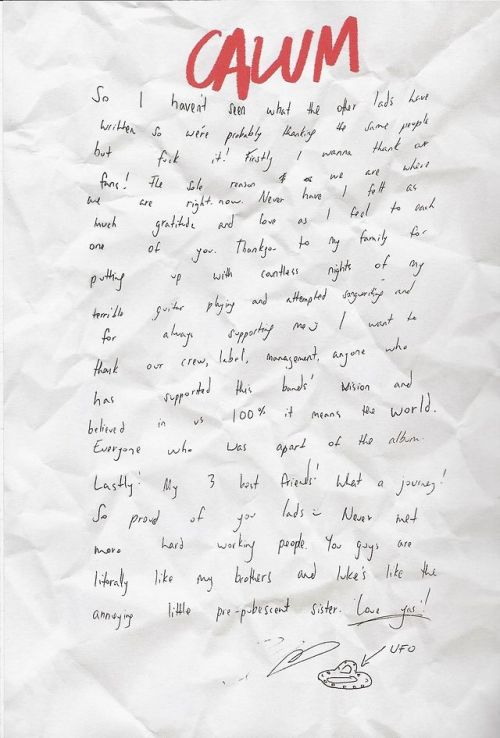 CALUM
So I haven't seen what the other lads have
written so were probably thanking the same people
but fuck it! Firstly I wanna thank our
fans! The sole reason we are where
we are right now. Never have I felt as
much gratitude and love as I feel to each
one of you. Thankyou to my family for
putting up with countless nights of my
terrible guitar playing and attempted songwriting and
for always supporting me :) I want to
thank our crew, label, management, anyone who
has supported this bands' vision and
believed in us 100% it means the world.
Everyone who was apart of the album.
Lastly! My 3 best friends! What a journey!
So proud of you lads :) Never met
more hard working people. You guys are
literally like my brothers and luke's like the
annoying little pre-pubescent sister. Love yas!
UFO